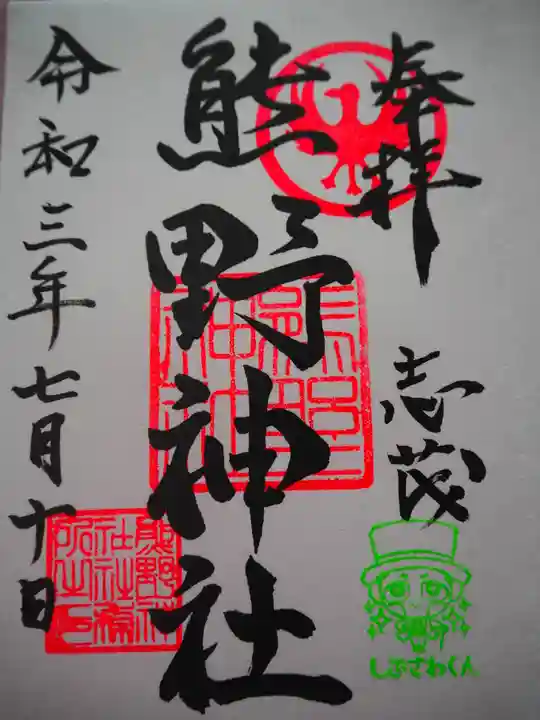 奉拝
志茂
しぶさわくん
熊野神社
熊野神社
令和三年七月十日
熊野神
社社務
所之印